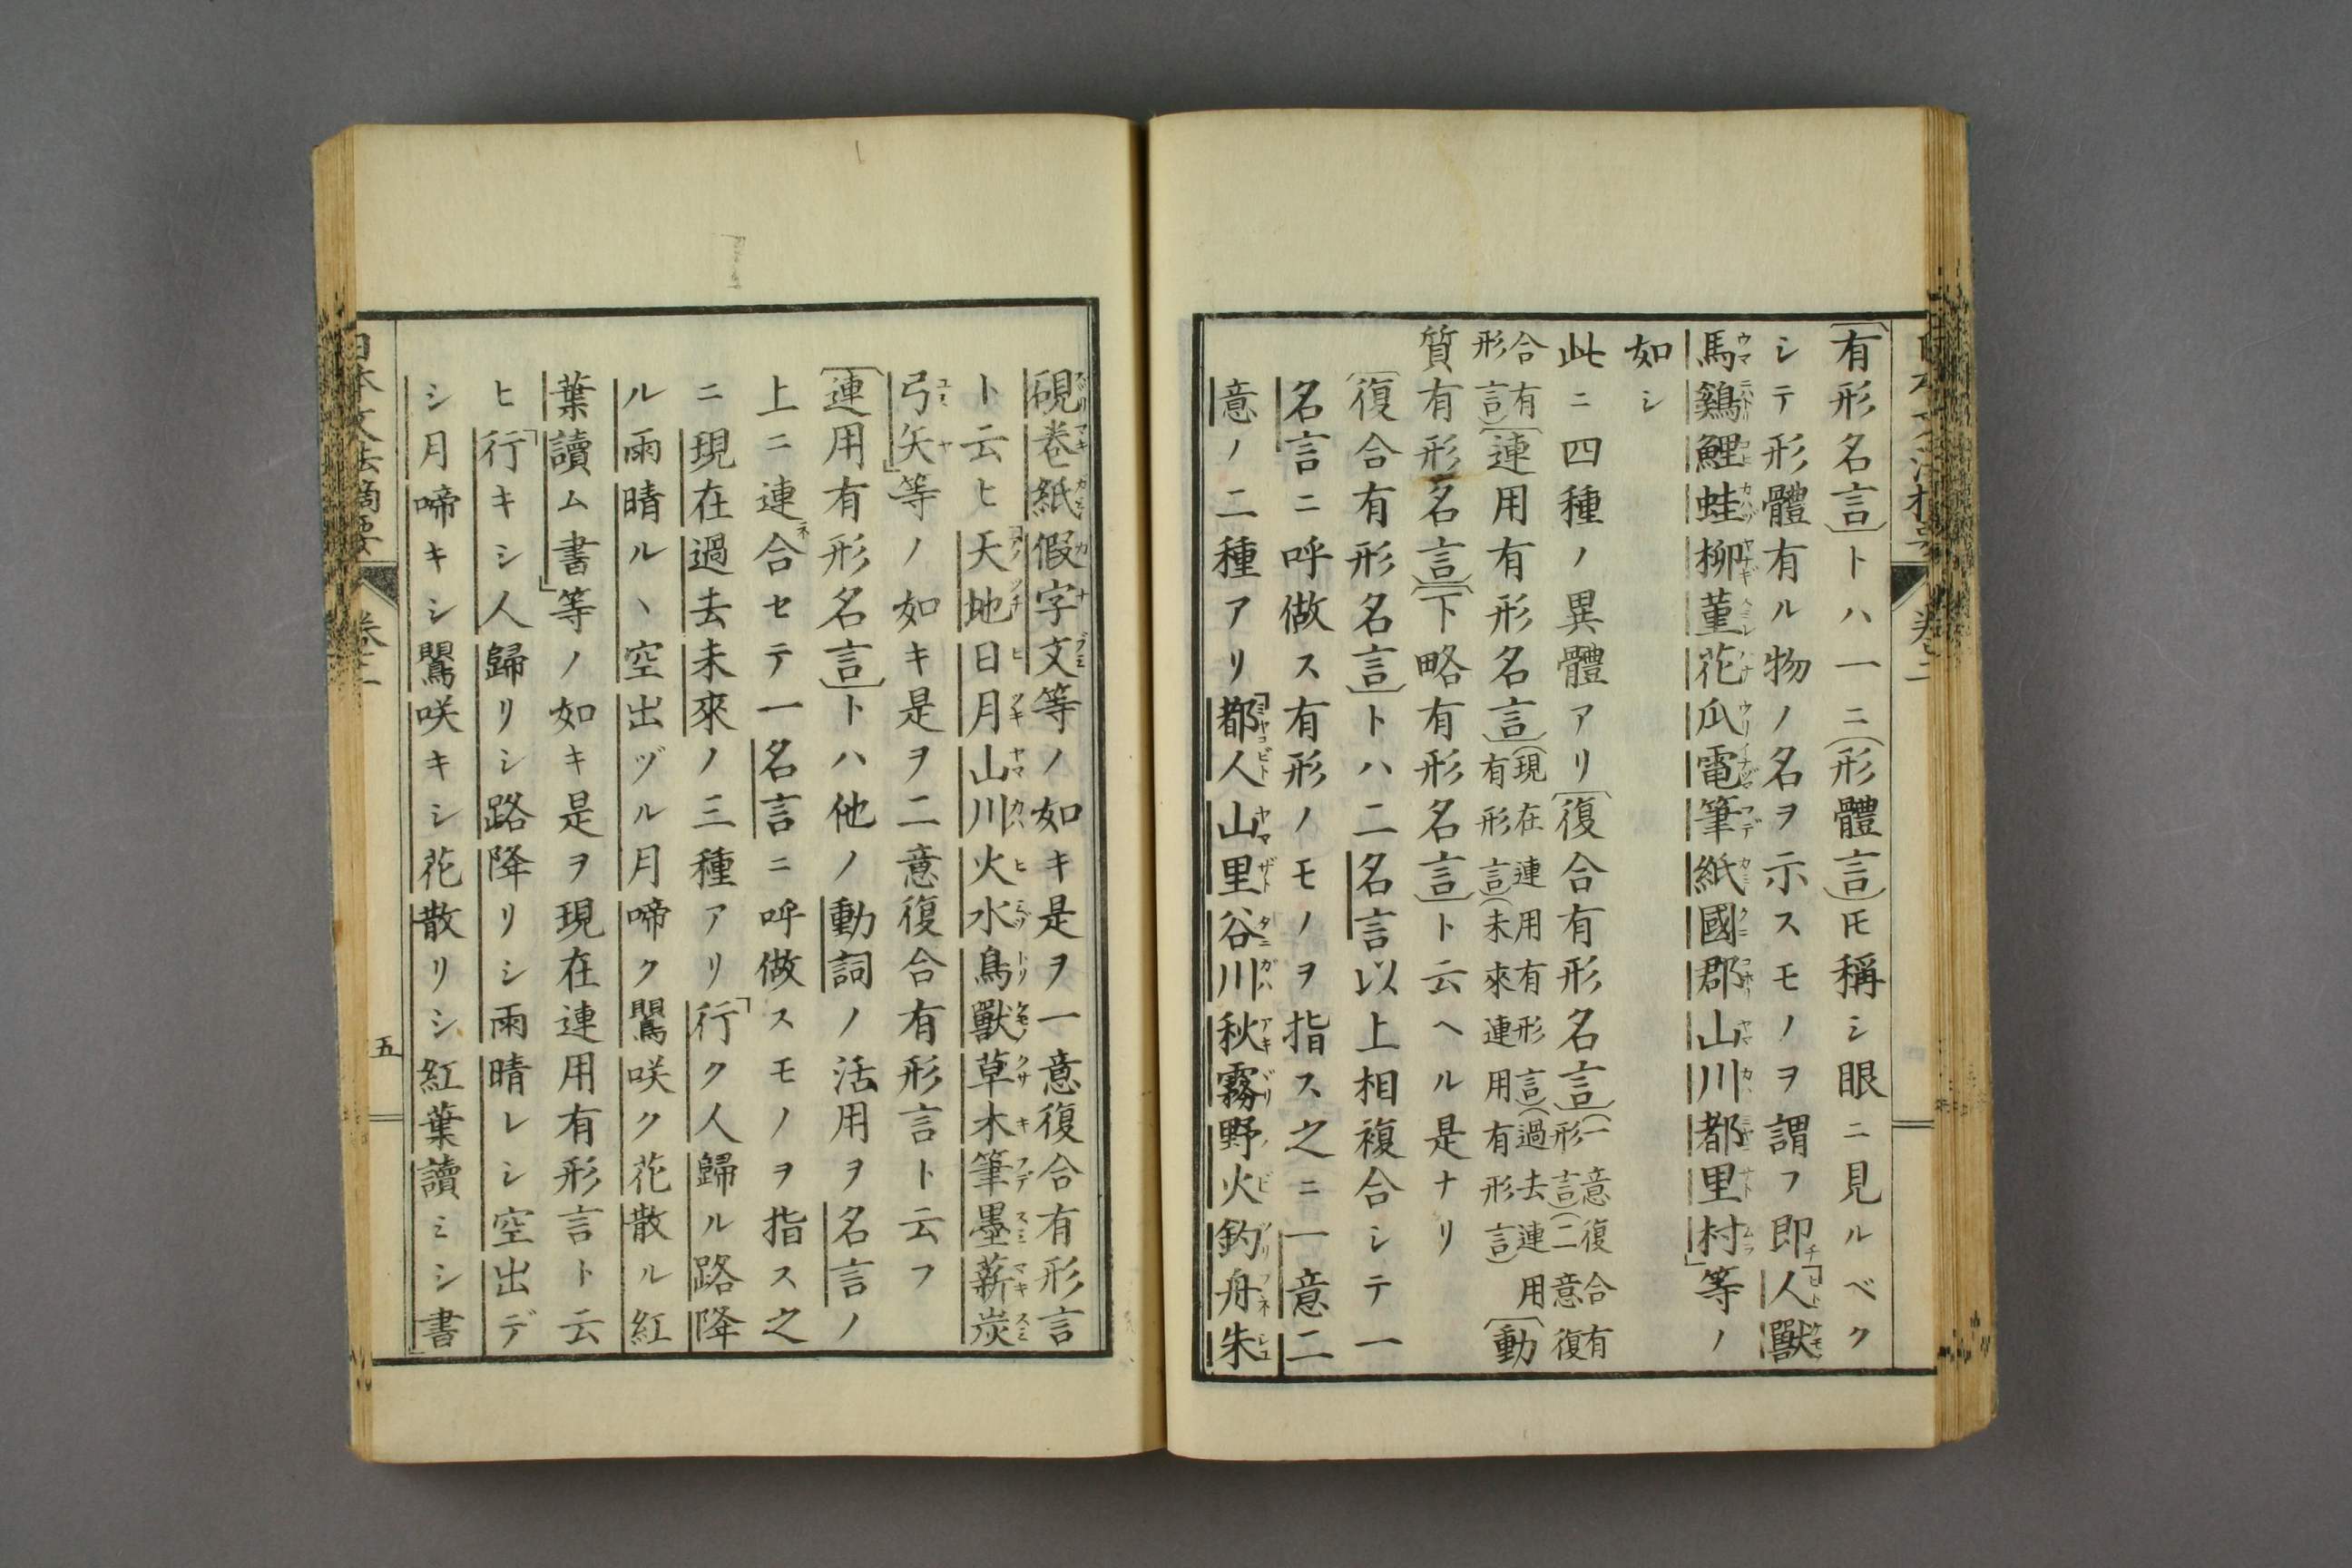 〔有形名言〕トハ一ニ（形體言）𪜈稱シ眼ニ見ルベク
シテ形體有ル物ノ名ヲ示スモノヲ謂フ即チ「人獸
馬鷄鯉蛙柳菫花瓜電筆紙國郡山川都里村」等ノ
如シ
此ニ四種ノ異體アリ〔復合有形名言〕（一意復合有形言）（二意復
合有形言）〔連用有形名言〕（現在連用有形言）（過去連用有形言）（未來連用有形言）〔動
質有形名言〕〔下略有形名言〕ト云ヘル是ナリ
〔復合有形名言〕トハ二名言以上相複合シテ一
名言ニ呼做ス有形ノモノヲ指ス之ニ一意二
意ノ二種アリ「都人山里谷川秋霧野火釣舟朱
硯卷紙假字文等ノ如キ是ヲ一意復合有形言
ト云ヒ「天地日月山川火水鳥獸草木筆墨薪炭
弓矢」等ノ如キ是ヲ二意復合有形言ト云フ
〔連用有形名言〕トハ他ノ動詞ノ活用ヲ名言ノ
上ニ連ネ合セテ一名言ニ呼做スモノヲ指ス之
ニ現在過去未來ノ三種アリ「行ク人歸ル路降
ル雨晴ルヽ空出ヅル月啼ク鶯咲ク花散ル紅
葉讀ム書」等ノ如キ是ヲ現在連用有形言ト云
ヒ「行キシ人歸リシ路降リシ雨晴レシ空出デ
シ月啼キシ鶯咲キシ花散リシ紅葉讀ミシ書」
日本文法摘要
卷二
五